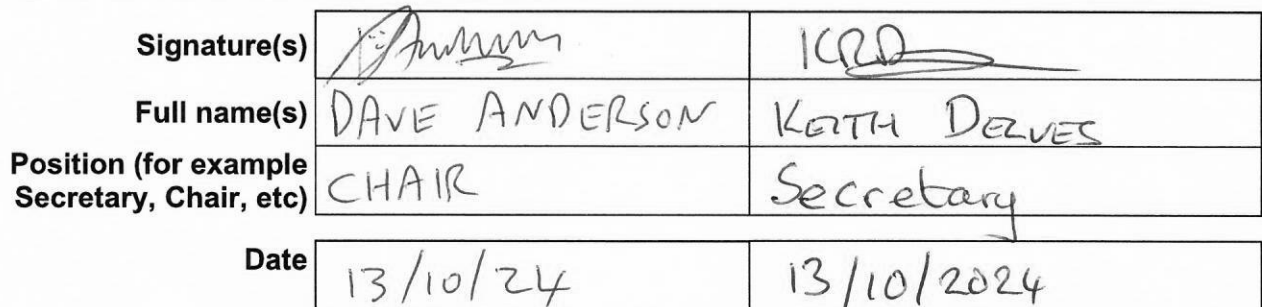 Signature(s) KRD
Full name(s) DAVE ANDERSON KEITH DELVES
Position (for example
Secretary, Chair, etc) CHAIR Secretary
Date 13/10/24 13/10/2024